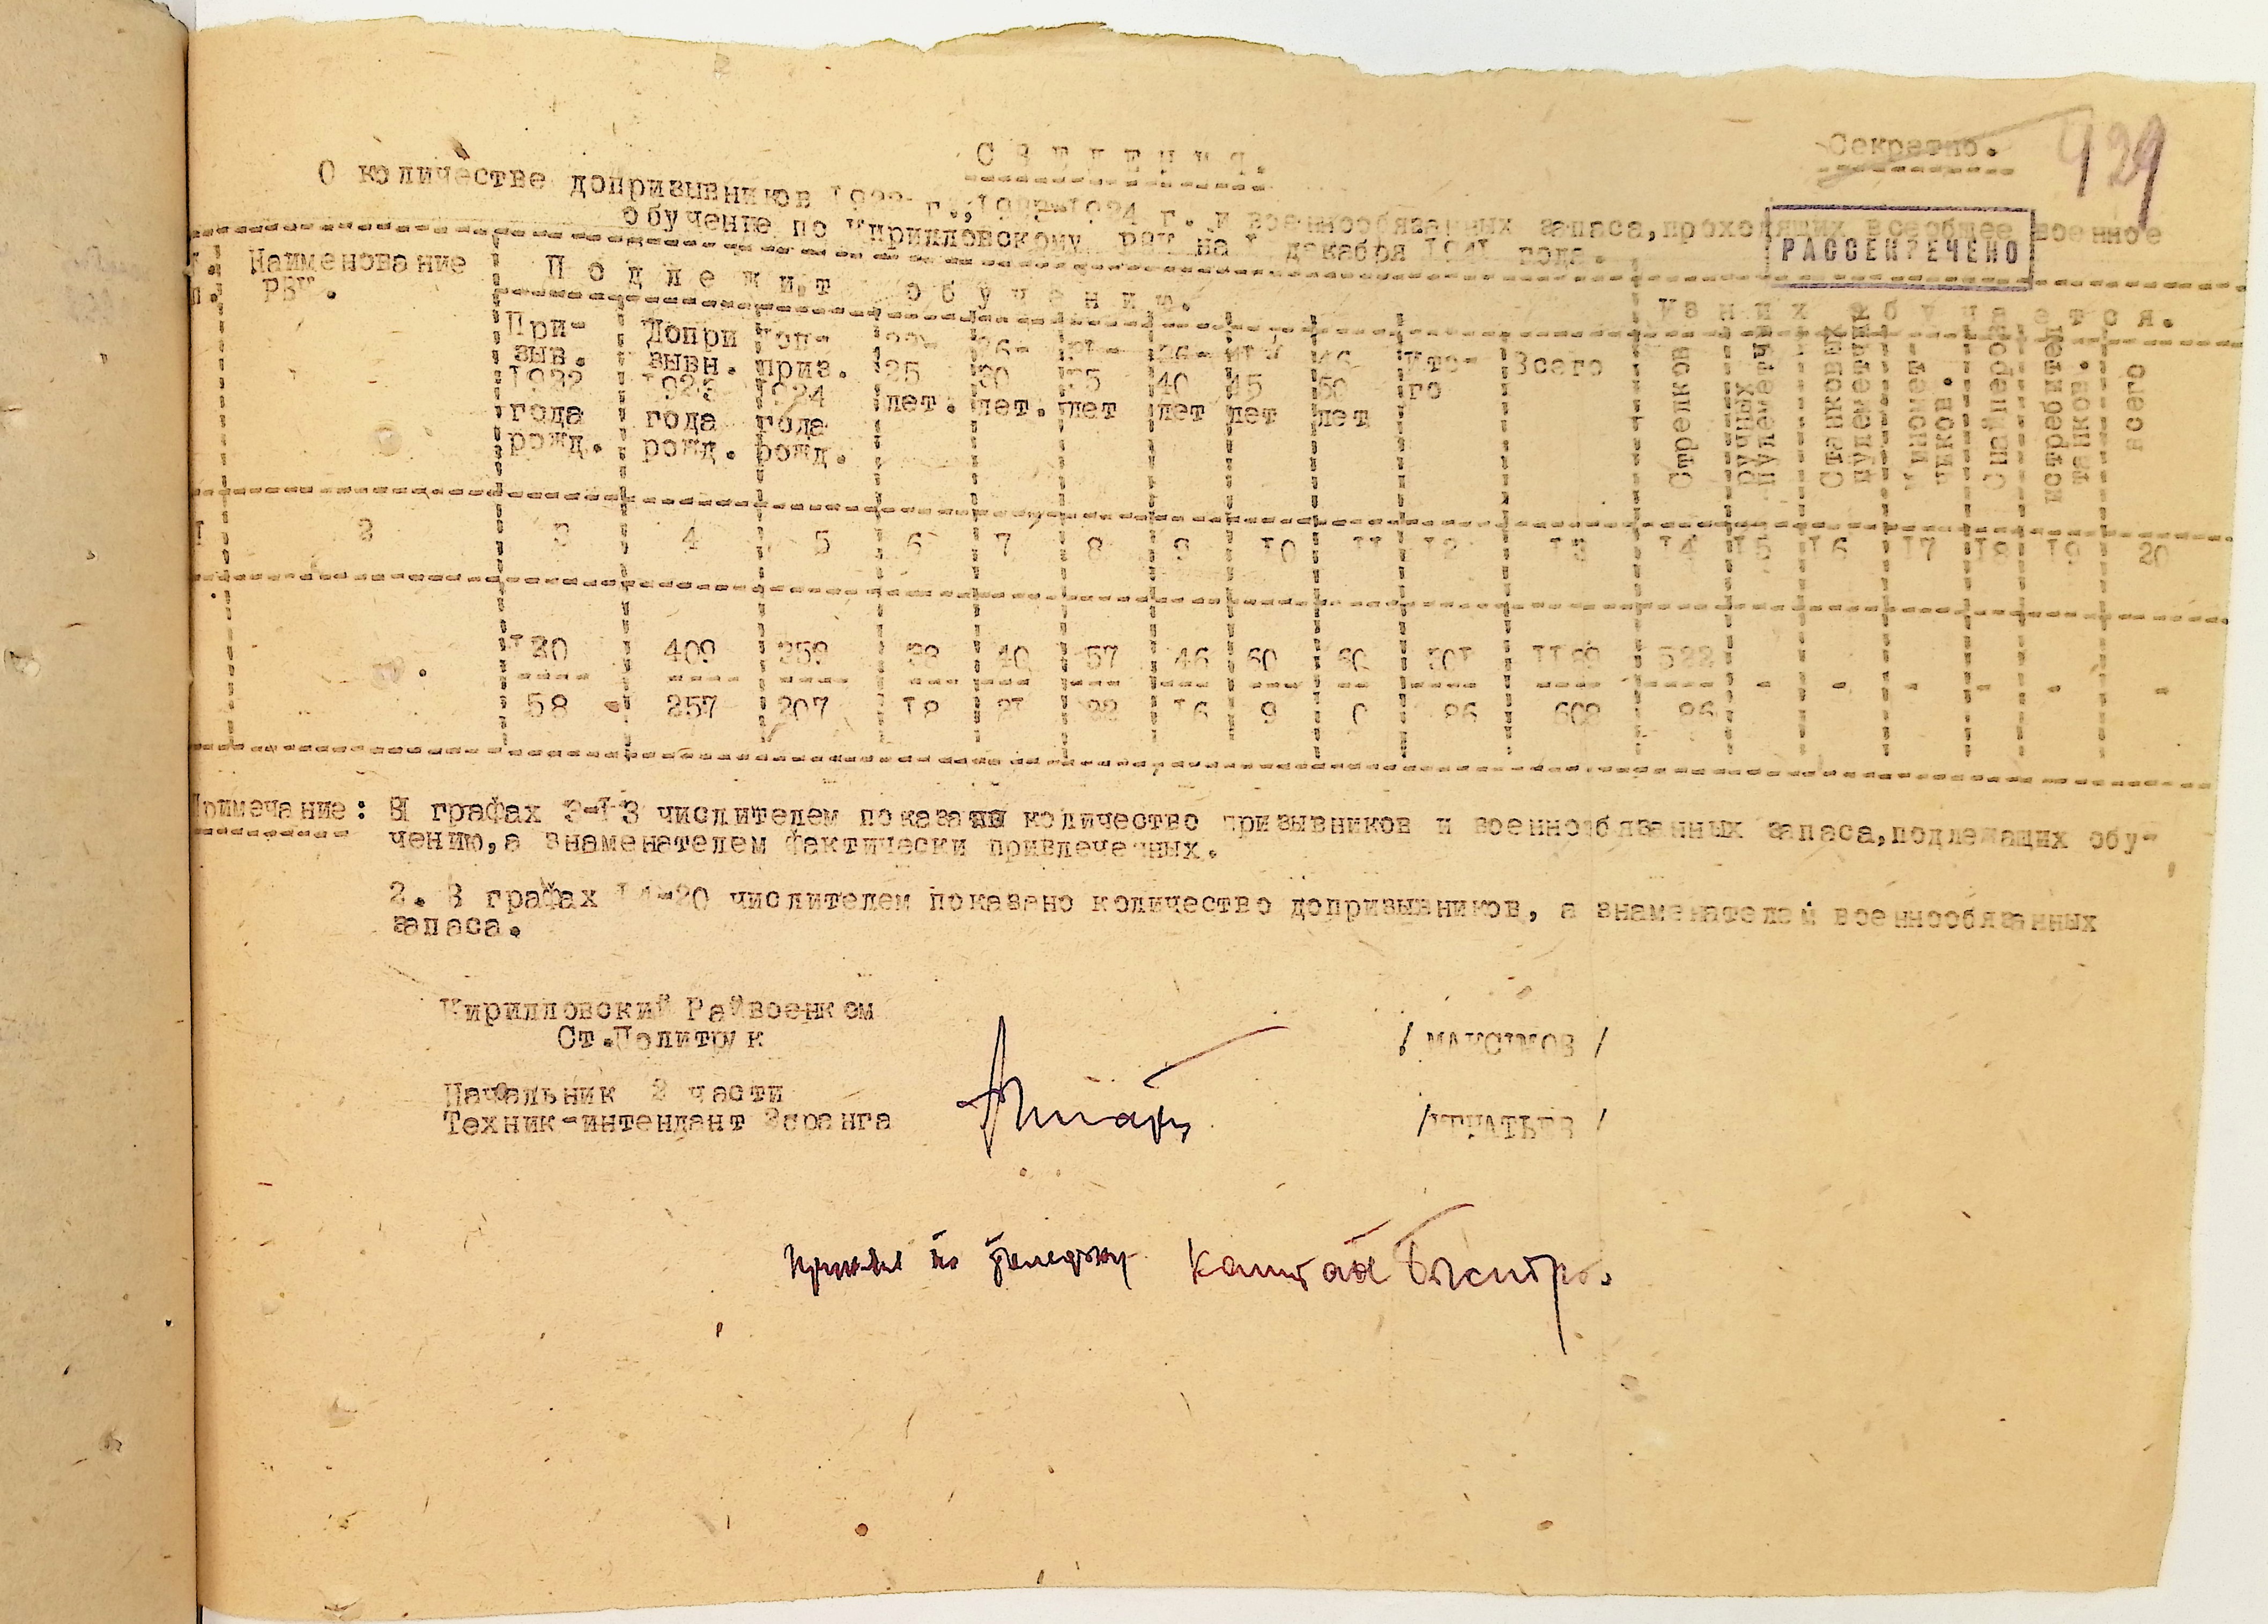 Секретно.
429
С В Е Д Е Н И Я.
О количестве допризывников г., г. и военнообязанных запаса, проходящих всеобщее военное
обучение по Кирилловскому РВК на I декабря I94I года.
РАССЕКРЕЧЕНО
Наименование РВК.
П о д л е ж и т о б у ч е н и ю.
Из них обучается.
При-зыв. I922 года рожд.
Допри зывн. I923 года рожд.
Доп-приз. I924 года рожд.
25 лет.
26-30 лет.
35 лет
40 лет
45 лет
46-50 лет
Ито-го
Всего
Стрелков
ручных пулеметчи
Станковых пулеметчик
Миномет-чиков.
Снайперов
истребител танков.
всего
I 2 3 4 5 6 7 8 9 I0 II I2 I3 I4 I5 I6 I7 I8 I9 20
409 259 38 40 57 46 60 60 30I II69 522
58 257 207 I8 2I 22 I6 9 0 86 608 86 - - - - - -
Примечание: В графах 3-I3 числителем показано количество призывников и военнообязанных запаса,подлежащих обу-
чению,а знаменателем фактически привлеченных.
2. В графах I4-20 числителем показано количество допризывников, а знаменателем военнообязанных
запаса.
Кирилловский Райвоенком
Ст.Политрук / МАКСИМОВ /
Начальник 2 части
Техник-интендант 2 ранга /ИГНАТЬЕВ /
по Капитан